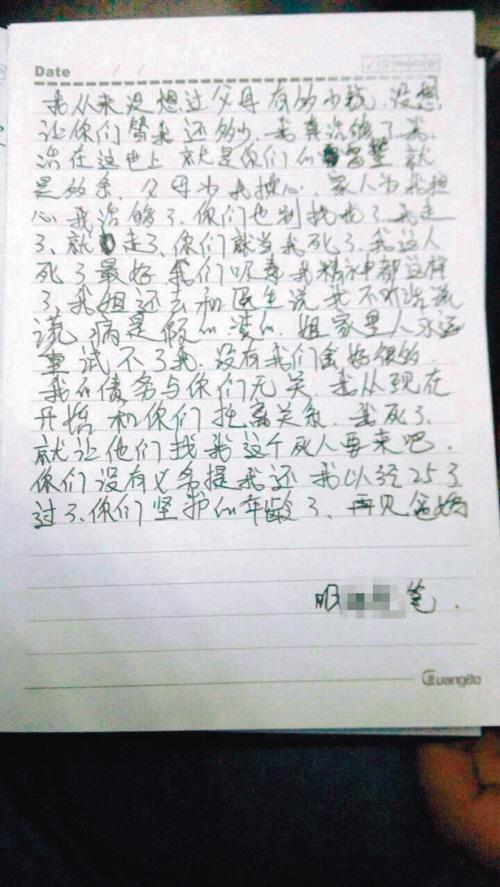 Date
我从来没想过父母有多少钱.没想
让你们替我还多少.我真活够了我
活在这世上就是你们的 就
是多余.父母为我操心.家人为我担
心我活够了.你们也别找我了我走
了、就走了、你们就当我死了.我这人
死了最好 我们 我精神都这样
了、我姐还去和医生说我不对说谎
谎 病是假的凑的. 姐家里人永远
重试不了我.没有我们会好很多.
我的债务与你们无关 我从现在
开始和你们脱离关系.我死了.
就让他们找我这个死人要来吧.
你们没有义务提我还 我以经25了
过了、你们坚护的年龄了、再见爸妈
笔.
GuangBo